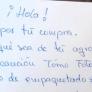 ¡Hola!
por tu compra.
que sea de tu agra
Tomo Foto
de empaquetado